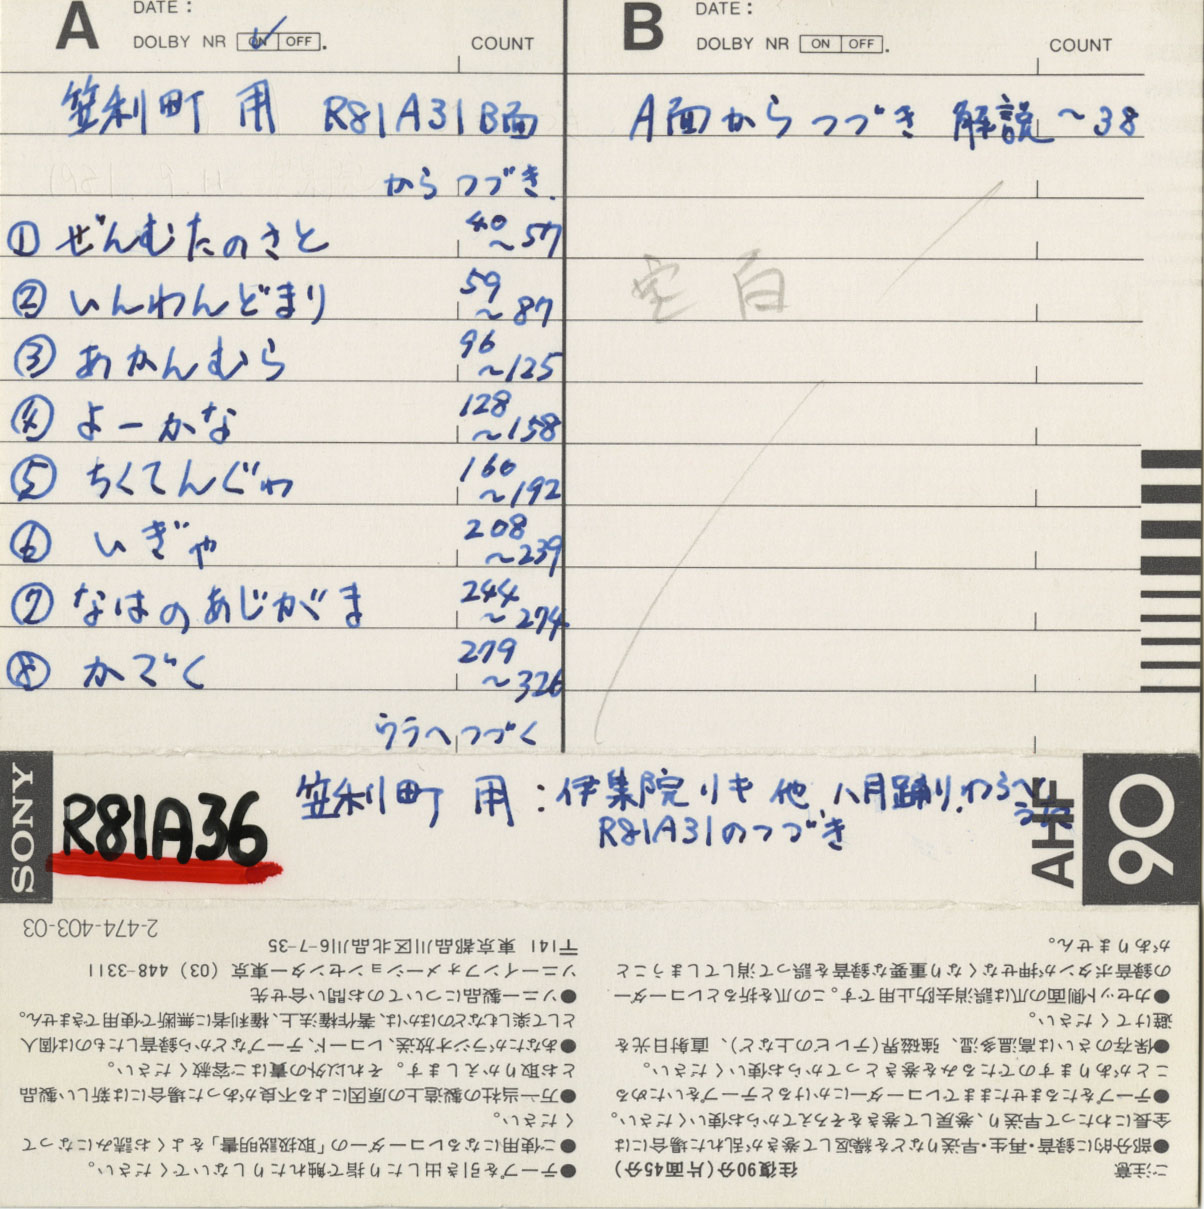 A DATE:
DOLBY NR ON OFF. COUNT
笠利町 用 R81A31B面
からつづき.
① ぜんむたのさと 40～57
② いんわんどまり 59～87
③ あかんむら 96～125
④ よーかな 128～158
⑤ ちくてんぐゎ 160～192
⑥ いぎゃ 208～239
⑦ なはのあじがま 244～274
⑧ かでく 279～326
ウラへつづく
B DATE:
DOLBY NR ON OFF. COUNT
A面からつづき 解説～38
空白
SONY
R81A36
笠利町 用:伊集院リキ 他.八月踊り.わらべうた
R81A31のつづき
AHF
90
ご注意 往復90分(片面45分)
●部分的に録音・再生・早送りなどを繰返して巻きが乱れた場合には
全長にわたって早送り、巻戻して巻きをそろえてからお使いください。
●テープをたるませたままでレコーダーにかけるとテープをいためる
ことがありますのでたるみを巻きとってからお使いください。
●保存のさいは高温多湿、強磁界(テレビの上など)、直射日光を
避けてください。
●カセット側面の爪は誤消去防止用です。この爪を折るとレコーダー
の録音ボタンが押せなくなり重要な録音を誤って消してしまうこと
がありません。
●テープを引き出したり指で触れたりしないでください。
●ご使用になるレコーダーの「取扱説明書」をよくお読みになって
ください。
●万一当社の製造上の原因による不良があった場合には新しい製品
とお取りかえします。それ以外の責はご容赦ください。
●あなたがラジオ放送、レコード、テープなどから録音したものは個人
として楽しむなどのほかは、著作権法上、権利者に無断で使用できません。
●ソニー製品についてのお問い合せ先
ソニーインフォメーションセンター東京 (03) 448-3311
〒141 東京都品川区北品川6-7-35
2-474-403-03